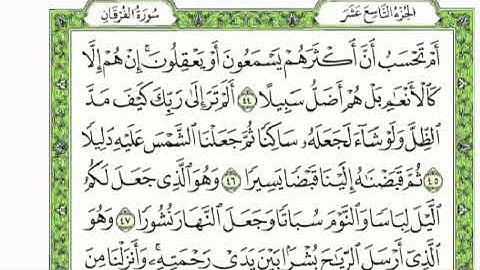 سُورَةُ الفُرْقَانِ
الجُزْءُ التَّاسِعَ عَشَرَ
أَمْ تَحْسَبُ أَنَّ أَكْثَرَهُمْ يَسْمَعُونَ أَوْ يَعْقِلُونَ ۚ إِنْ هُمْ إِلَّا
كَالْأَنْعَٰمِ بَلْ هُمْ أَضَلُّ سَبِيلًا ٤٤ أَلَمْ تَرَ إِلَىٰ رَبِّكَ كَيْفَ مَدَّ
الظِّلَّ وَلَوْ شَآءَ لَجَعَلَهُۥ سَاكِنًا ثُمَّ جَعَلْنَا الشَّمْسَ عَلَيْهِ دَلِيلًا
٤٥ ثُمَّ قَبَضْنَٰهُ إِلَيْنَا قَبْضًا يَسِيرًا ٤٦ وَهُوَ الَّذِى جَعَلَ لَكُمُ
الَّيْلَ لِبَاسًا وَالنَّوْمَ سُبَاتًا وَجَعَلَ النَّهَارَ نُشُورًا ٤٧ وَهُوَ
الَّذِىٓ أَرْسَلَ الرِّيَٰحَ بُشْرًۢا بَيْنَ يَدَىْ رَحْمَتِهِۦ ۚ وَأَنزَلْنَا مِنَ